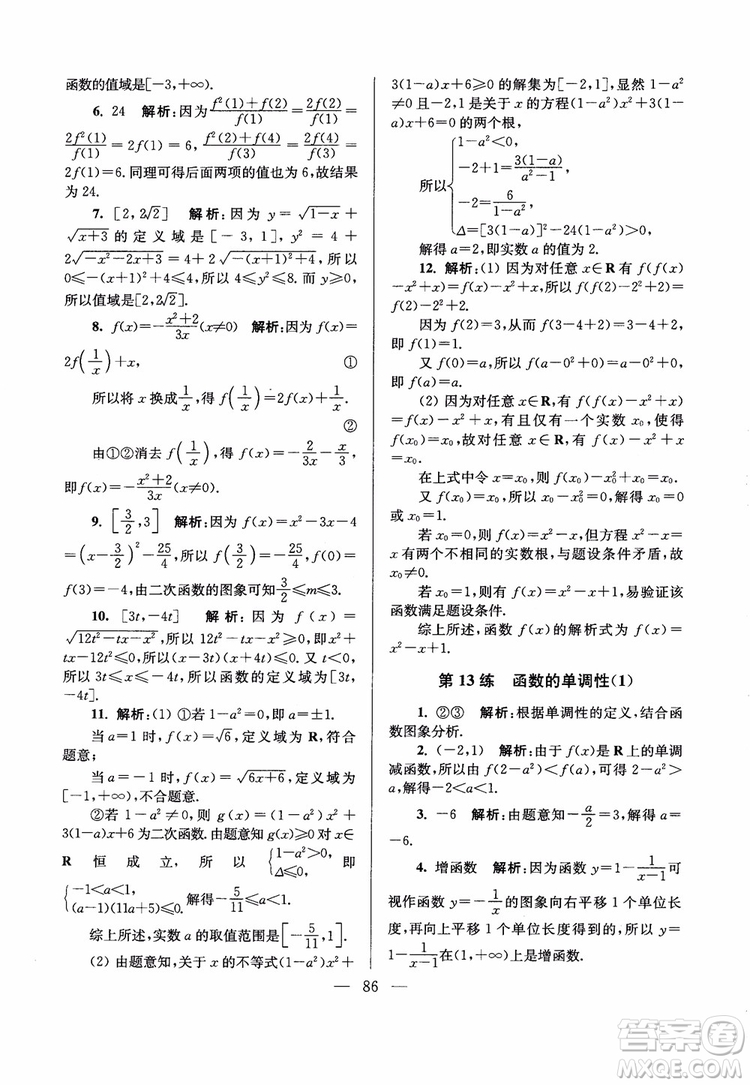 函数的值域是[-3,+∞).
6. 24 解析:因为\frac{f²(1)+f(2)}{f(1)}=
\frac{2f²(1)}{f(1)}=2f(1)=6,\frac{f²(2)+f(4)}{f(3)}=\frac{2f(4)}{f(3)}=
2f(1)=6.同理可得后面两项的值也为 6,故结果
为 24.
7. [2,2√2] 解析:因为 y=√(1-x)+
√(x+3)的定义域是[-3,1],y²=4+
2√(-x²-2x+3)=4+2√(-(x+1)²+4),所以
0≤-(x+1)²+4≤4,所以 4≤y²≤8.
所以值域是[2,2√2].
8. f(x)=-\frac{x²+2}{3x}(x≠0) 解析:因为f(x)=
2f(\frac{1}{x})+x, ①
所以将 x 换成\frac{1}{x},得 f(\frac{1}{x})=2f(x)+\frac{1}{x}.
②
由①②消去 f(\frac{1}{x}),得 f(x)=-\frac{2}{3x}-\frac{x}{3},
即f(x)=-\frac{x²+2}{3x}(x≠0).
9. [\frac{3}{2},3] 解析:因为 f(x)=x²-3x-4
=(x-\frac{3}{2})²-\frac{25}{4},所以 f(\frac{3}{2})=-\frac{25}{4},又 f(0)=
f(3)=-4,由二次函数的图象可知\frac{3}{2}≤m≤3.
10. [3t,-4t] 解析:因为 f(x)=
√(12t²-tx-x²),所以 12t²-tx-x²≥0,即 x²+
tx-12t²≤0,所以(x+4t)(x-3t)≤0.又 t<0,
所以 3t≤x≤-4t,所以函数的定义域为[3t,
-4t].
11. 解析:(1) ①若 1-a²=0,即 a=±1.
当 a=1 时,f(x)=√6,定义域为 R,符合
题意;
当 a=-1 时,f(x)=√(6x+6),定义域为
[-1,+∞),不合题意.
②若 1-a²≠0,则 g(x)=(1-a²)x²+
3(1-a)x+6 为二次函数.由题意知 g(x)≥0对x∈
R 恒成立,所以{1-a²>0, Δ≤0, 即
{-1<a<1, (a-1)(11a+5)≤0. 解得-\frac{5}{11}≤a<1.
综上所述,实数 a 的取值范围是[-\frac{5}{11},1].
(2) 由题意知,关于 x 的不等式(1-a²)x²+
3(1-a)x+6≥0 的解集为[-2,1],显然 1-a²
≠0 且-2,1 是关于 x 的方程(1-a²)x²+3(1-
a)x+6=0 的两个根,
所以{1-a²<0,
-2+1=\frac{3(1-a)}{a²-1},
-2=\frac{6}{1-a²},
Δ=[3(1-a)]²-24(1-a²)>0,
解得 a=2,即实数 a 的值为 2.
12. 解析:(1) 因为对任意 x∈R 有 f(f(x)
-x²+x)=f(x)-x²+x,所以 f(f(2)-2²+2)=
f(2)-2²+2.
因为 f(2)=3,从而 f(3-2²+2)=3-2²+2,
即 f(1)=1.
又 f(0)=a,所以 f(a-0²+0)=a-0²+0,
即 f(a)=a.
(2) 因为对任意 x∈R 有 f(f(x)-x²+x)
=f(x)-x²+x,有且仅有一个实数 x₀,使得
f(x₀)=x₀,故对任意 x∈R,有 f(x)-x²+x
=x₀.
在上式中令 x=x₀,有 f(x₀)-x₀²+x₀=x₀.
又 f(x₀)=x₀,所以 x₀-x₀²=0,解得 x₀=0
或 x₀=1.
若 x₀=0,则 f(x)=x²-x,但方程 x²-x=
x 有两个不相同的实数根,与题设条件矛盾,故
x₀≠0.
若 x₀=1,则有 f(x)=x²-x+1,易验证该
函数满足题设条件.
综上所述,函数 f(x)的解析式为 f(x)=
x²-x+1.
第 13 练 函数的单调性(1)
1. ②③ 解析:根据单调性的定义,结合函
数图象分析.
2. (-2,1) 解析:由于 f(x)是 R 上的单调
减函数,所以由题意得 2-a²>a,解得
-2<a<1.
3. -6 解析:由题意知-\frac{a}{2}=3,解得 a=
-6.
4. 增函数 解析:因为函数 y=1-\frac{1}{x-1}可
视作函数 y=-\frac{1}{x}的图象向右平移 1 个单位长
度,再向上平移 1 个单位长度得到的,所以 y=
1-\frac{1}{x-1}在(1,+∞)上是增函数.
— 86 —
答案圈
MXQE.COM